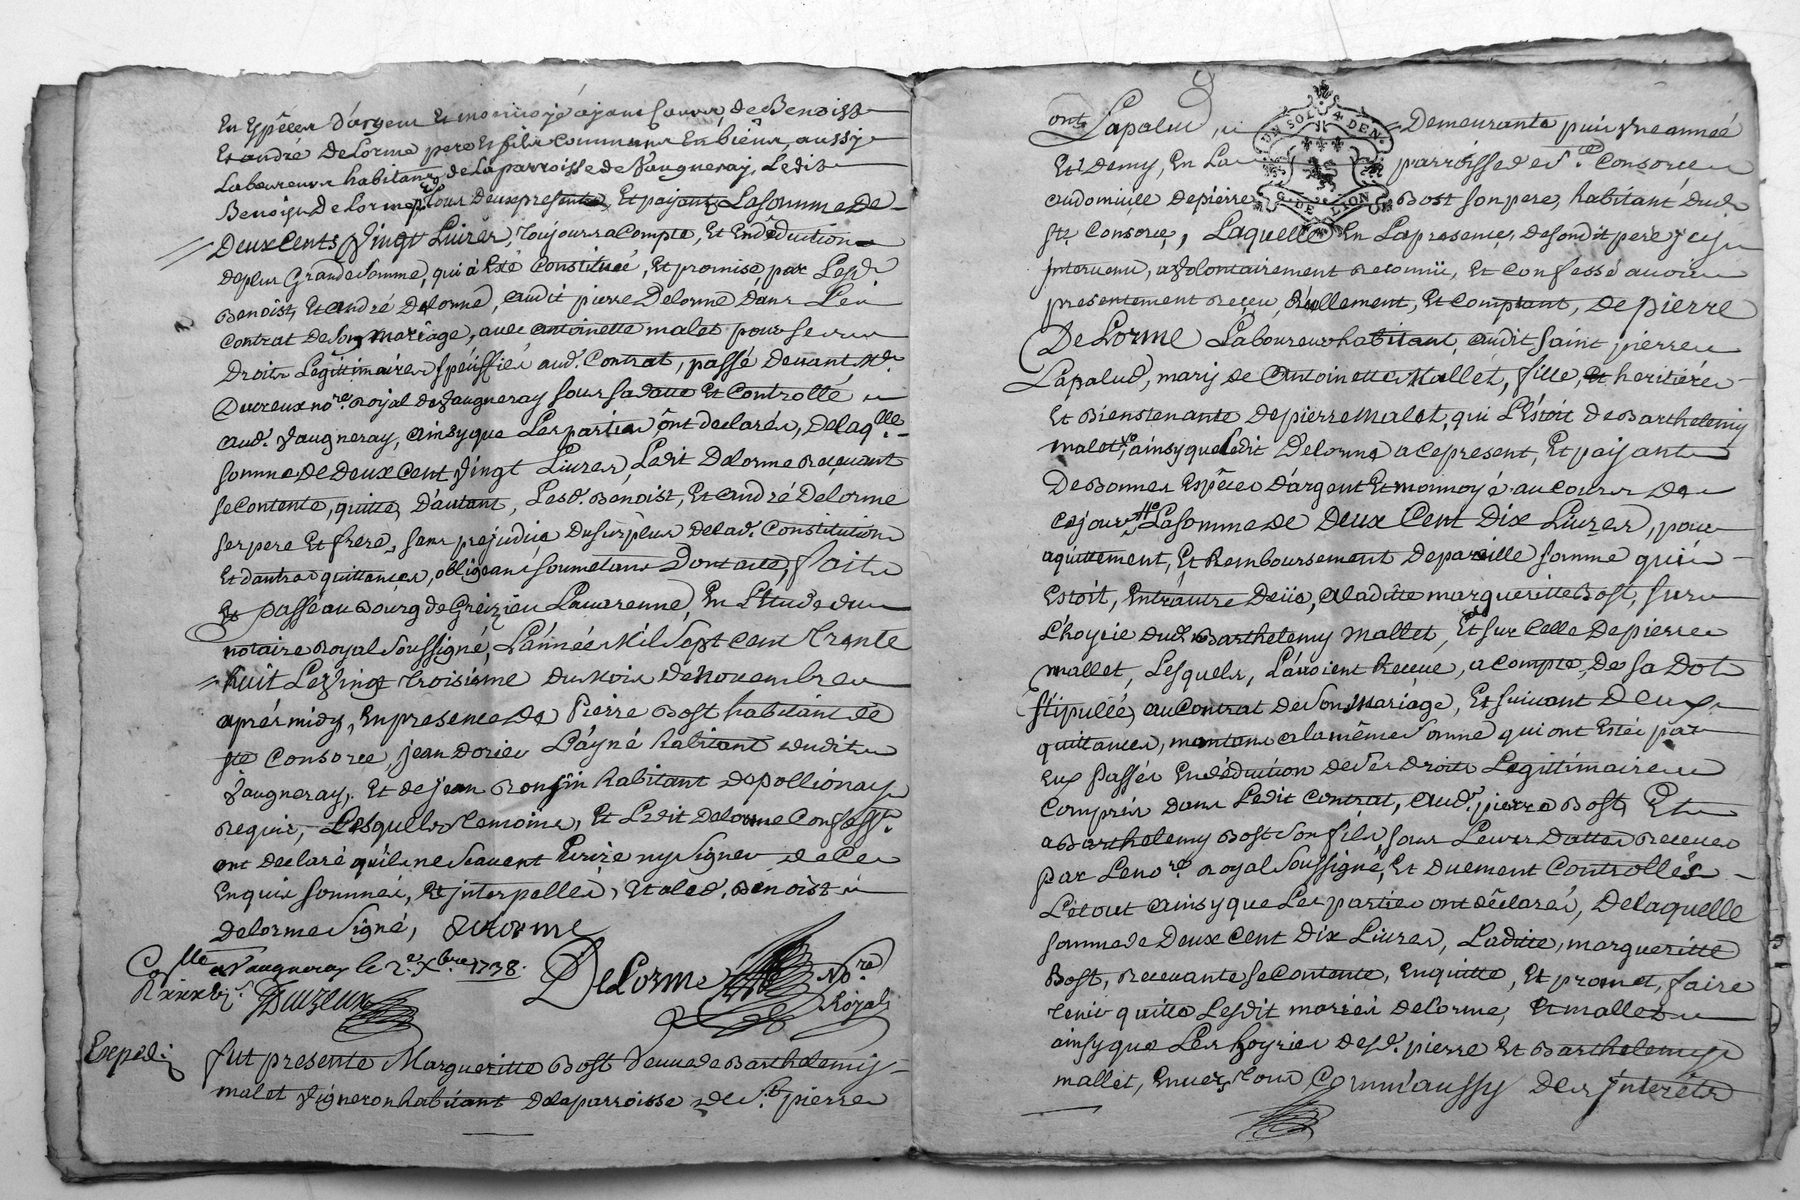 En Espêces d'argent Et monnoyé ayant cours, de Benoist
Et andré DeLorme pere Et fils communs En biens, aussy
Laboureurs habitants de La parroisse de Vaugneray, Ledit
Benoist De Lorme p. Tous Deux presents Et payants La somme De
Deux Cents Vingt Livres, Toujours a Compte, Et En dêduction
de plus Grande Somme, qui à Esté Constituée, Et promise par Lesd.
Benoist, Et andré Delorme, audit pierre Delorme dans Le
Contrat de son mariage, avec antoinette malet pour ses
Droits Légittimaires spéciffiés aud. Contrat, passé devant Me.
Ducreux nore. Royal de Vaugneray sous sa datte Et Controllé
aud. Vaugneray, ainsy que Les parties ont declarés, de laqlle.
somme de Deux Cent Vingt Livres, Ledit Delorme Recevant
se Contente, quitte, D'autant, Lesd. Benoist, Et andré Delorme
ses pere Et frere, sans prejudice Du surplus de lad. Constitution
Et d'autres quittances, obligeans soumetans Dont acte, fait
Et passé au Bourg de Greizieu Lavarenne, En L'Etude du
notaire Royal Soussigné, L'année Mil Sept Cent Trante
huit Le Vingt Troisieme du mois de Novembre
aprés midy, En presence de Pierre Bost habitant de
ste Consorce, jean Dorieu L'ayné habitant dudit
Vaugneray, Et de jean Ronzin habitant de pollionay
Requis, Lesquels Temoins, Et Ledit Delorme Confesst.
ont declaré qu'ils ne Scavent Ecrire ny signer de Ce
Enquis sommés, Et interpellés, Et Led. Bénoist
delorme signé, delorme
Conlle. a Vaugneray le 2e. Xbre 1738.
DeLorme Nore. Royal
Ducreux
Expédié
fut presente Margueritte Bost Veuve de Barthelemy
malet Vigneron habitant de la parroisse de St. pierre
Lapalud, Demeurante puis Une année
UN SOL 4 DEN.
G. DE LYON
Et Demy, En La parroisse de Ste Consorce
au domicile de pierre Bost son pere, habitant dud.
ste. Consorce, Laquelle En La presence, de sondit pere icy
Intervenu, a Volontairement Reconnu, Et Confessé avoir
presentement Reçeu, Réellement, Et Comptant, De pierre
De Lorme Laboureur habitant audit saint pierre
Lapalud, mary de antoinette Mallet, fille, Et heritiére
Et Bienstenante de pierre malet, qui L'étoit de Barthelemy
malet, ainsy que Ledit Delorme a Ce present, Et payant
De Bonnes Espêces d'argent Et monnoyé au cours de
Ce jour, La somme de Deux Cent Dix Livres, pour
aquittement, Et Remboursement de pareille somme qui
Estoit, Entr'autre Deüe, a Ladiite margueritte Bost, sur
L'hoyrie dud. Barthelemy Mallet, Et sur Celle De pierre
mallet, Lesquels, L'avoient Receue, a compte, de sa Dot
stipullée au Contrat de Son Mariage, Et suivant Deux
quittances, montans a la même somme qui ont Estée par
Eux Passés En déduction de Ses droits Legittimaires
Compris dans Ledit Contrat, aud. pierre Bost, Et
a Barthelemy Bost son fils, sous Leurs Dattes Receues
par Le nore. Royal Soussigné, Et Duement Controllés
Le tout ainsy que Les parties ont déclarés, De laquelle
somme de Deux Cent Dix Livres, Laditte, margueritte
Bost, Recevante se Contente, En quitte, Et promet, faire
Tenir quitte Lesdit mariés delorme, Et mallet
ainsy que Les hoyries desd. pierre Et Barthelemy
mallet, Envers Tous Comm'aussy Des interêts